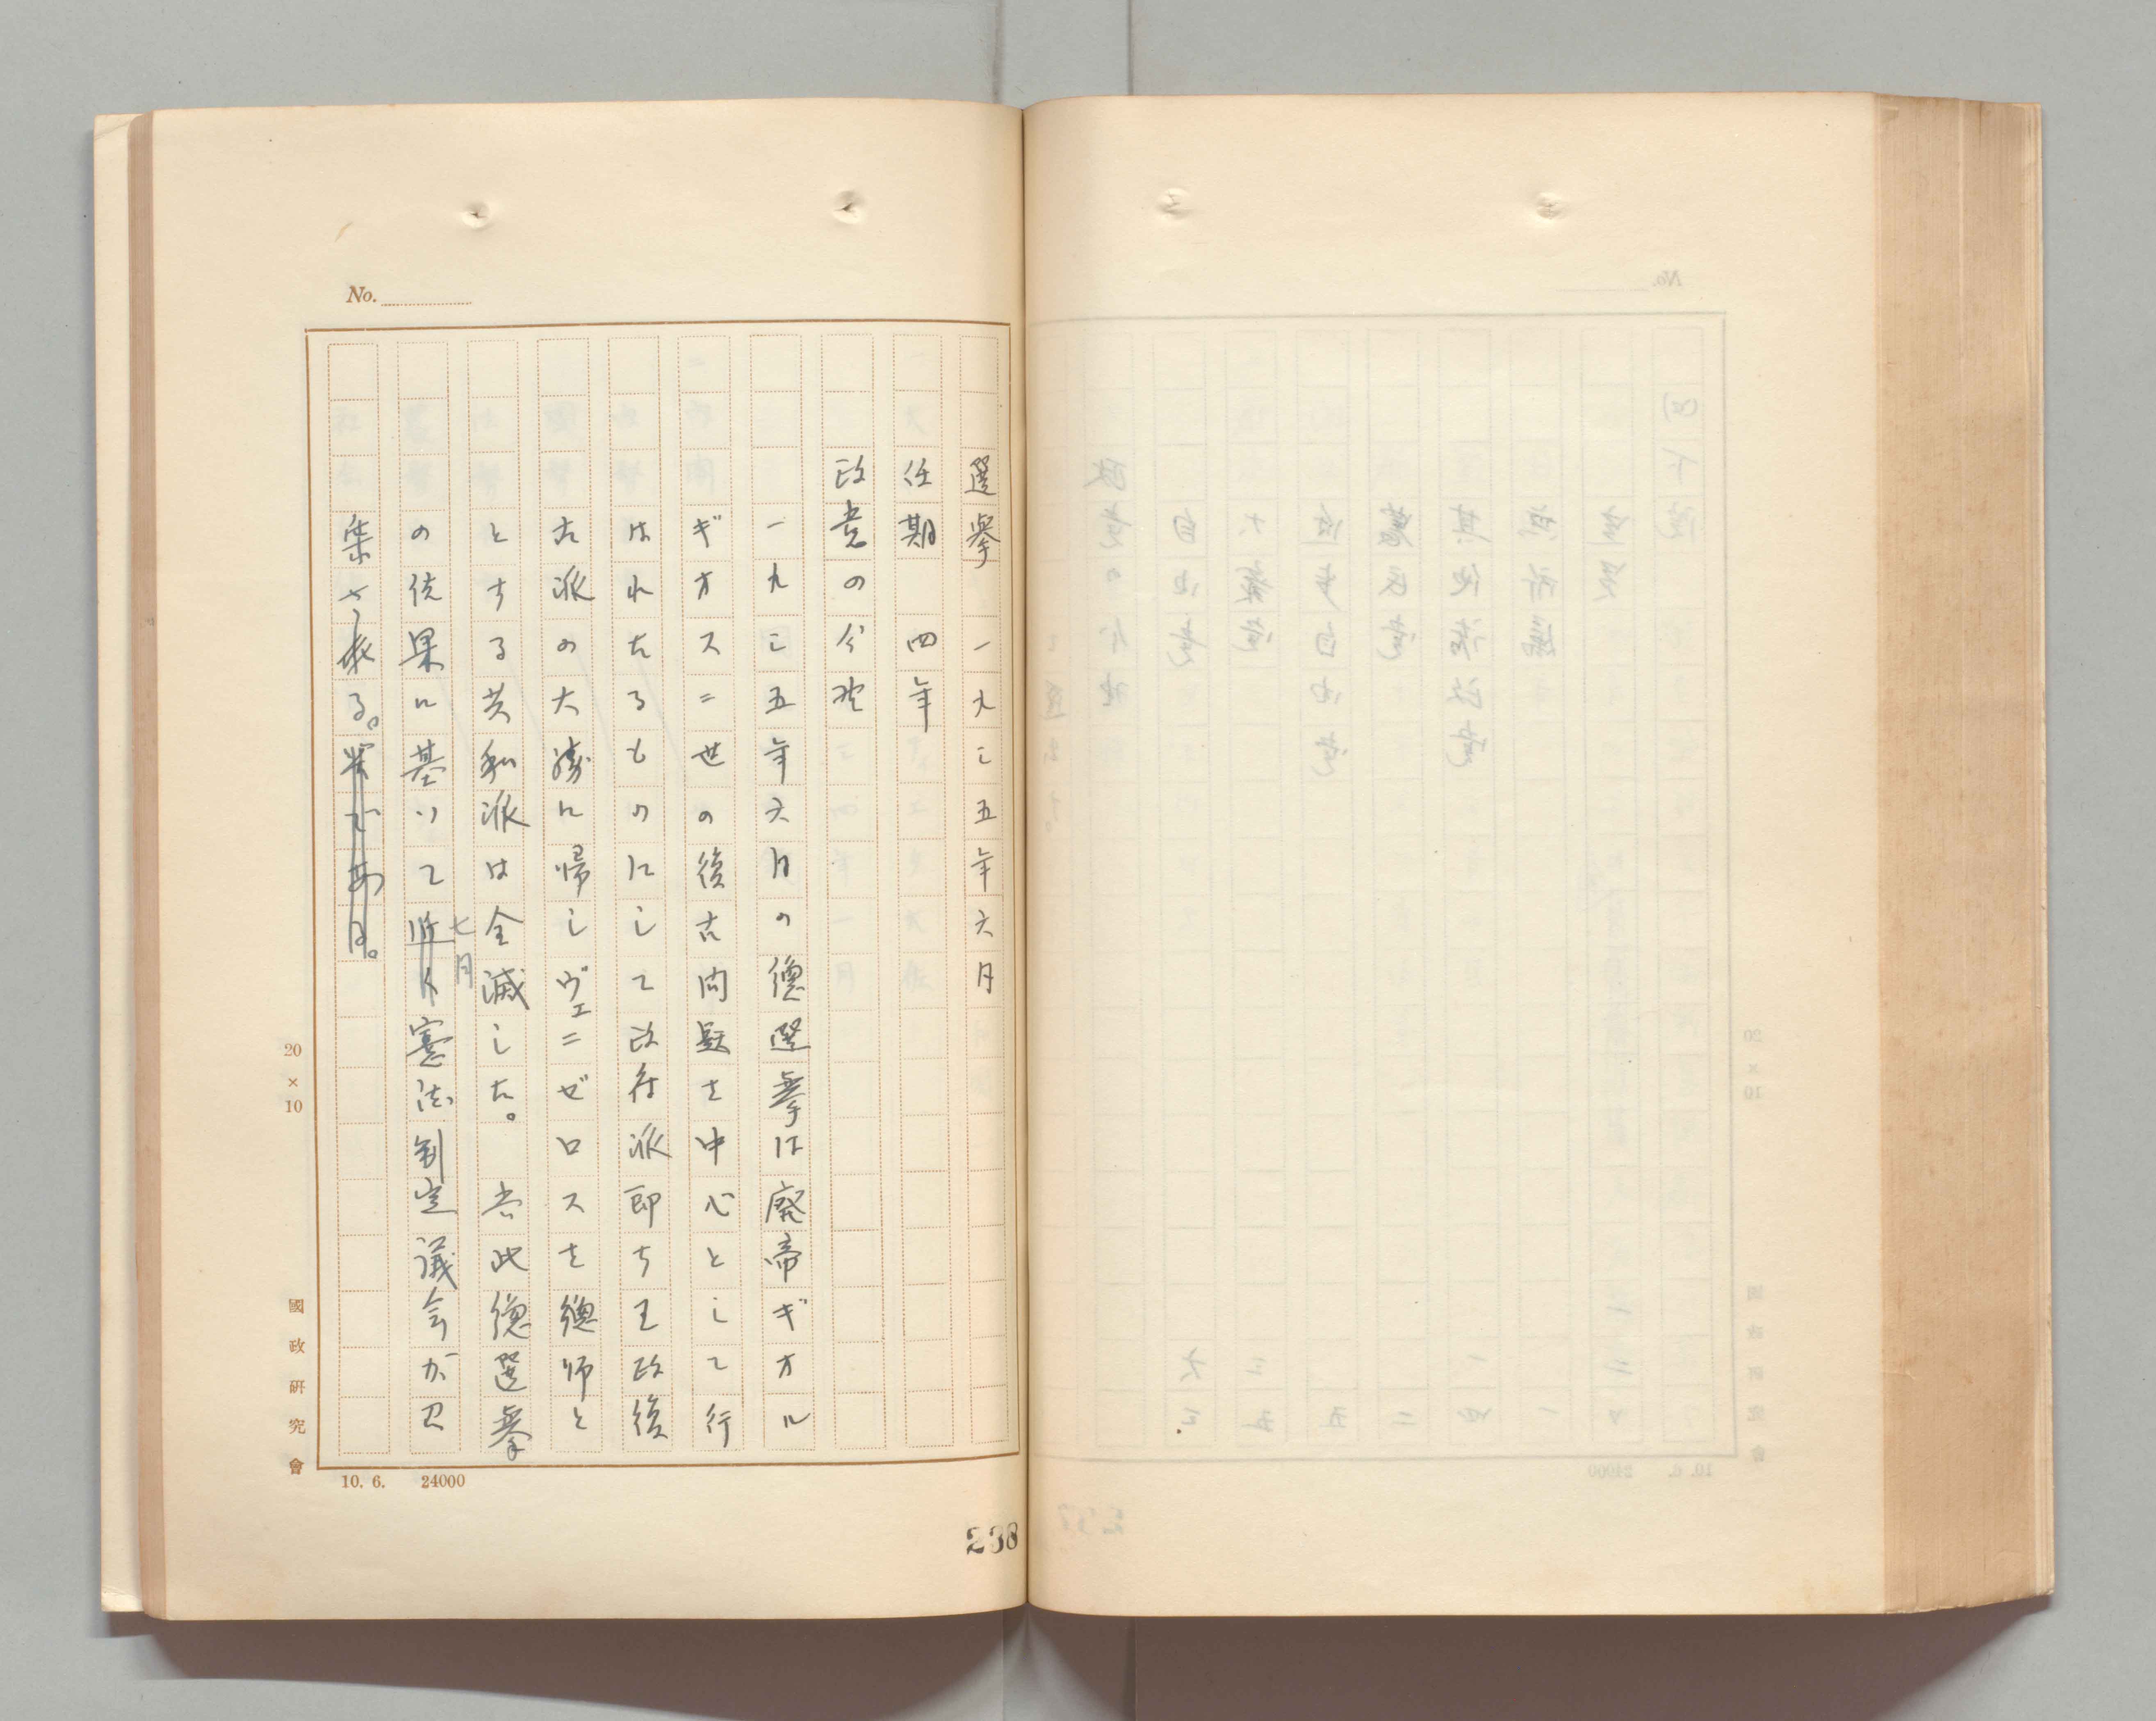 No.
選挙 一九三五年六月
任期 四年
政党の分野
一九三五年六月の總選挙は廃帝ギオル
ギオス二世の復古問題を中心として行
はれたるものにして政府派即ち王政復
古派の大勝に帰しヴェニゼロスを總帥と
とする共和派は全滅した。 尚此總選挙
の結果に基いて七月憲法制定議会が召
集される。筈である。
20×10
國政研究會
10. 6. 24000
238